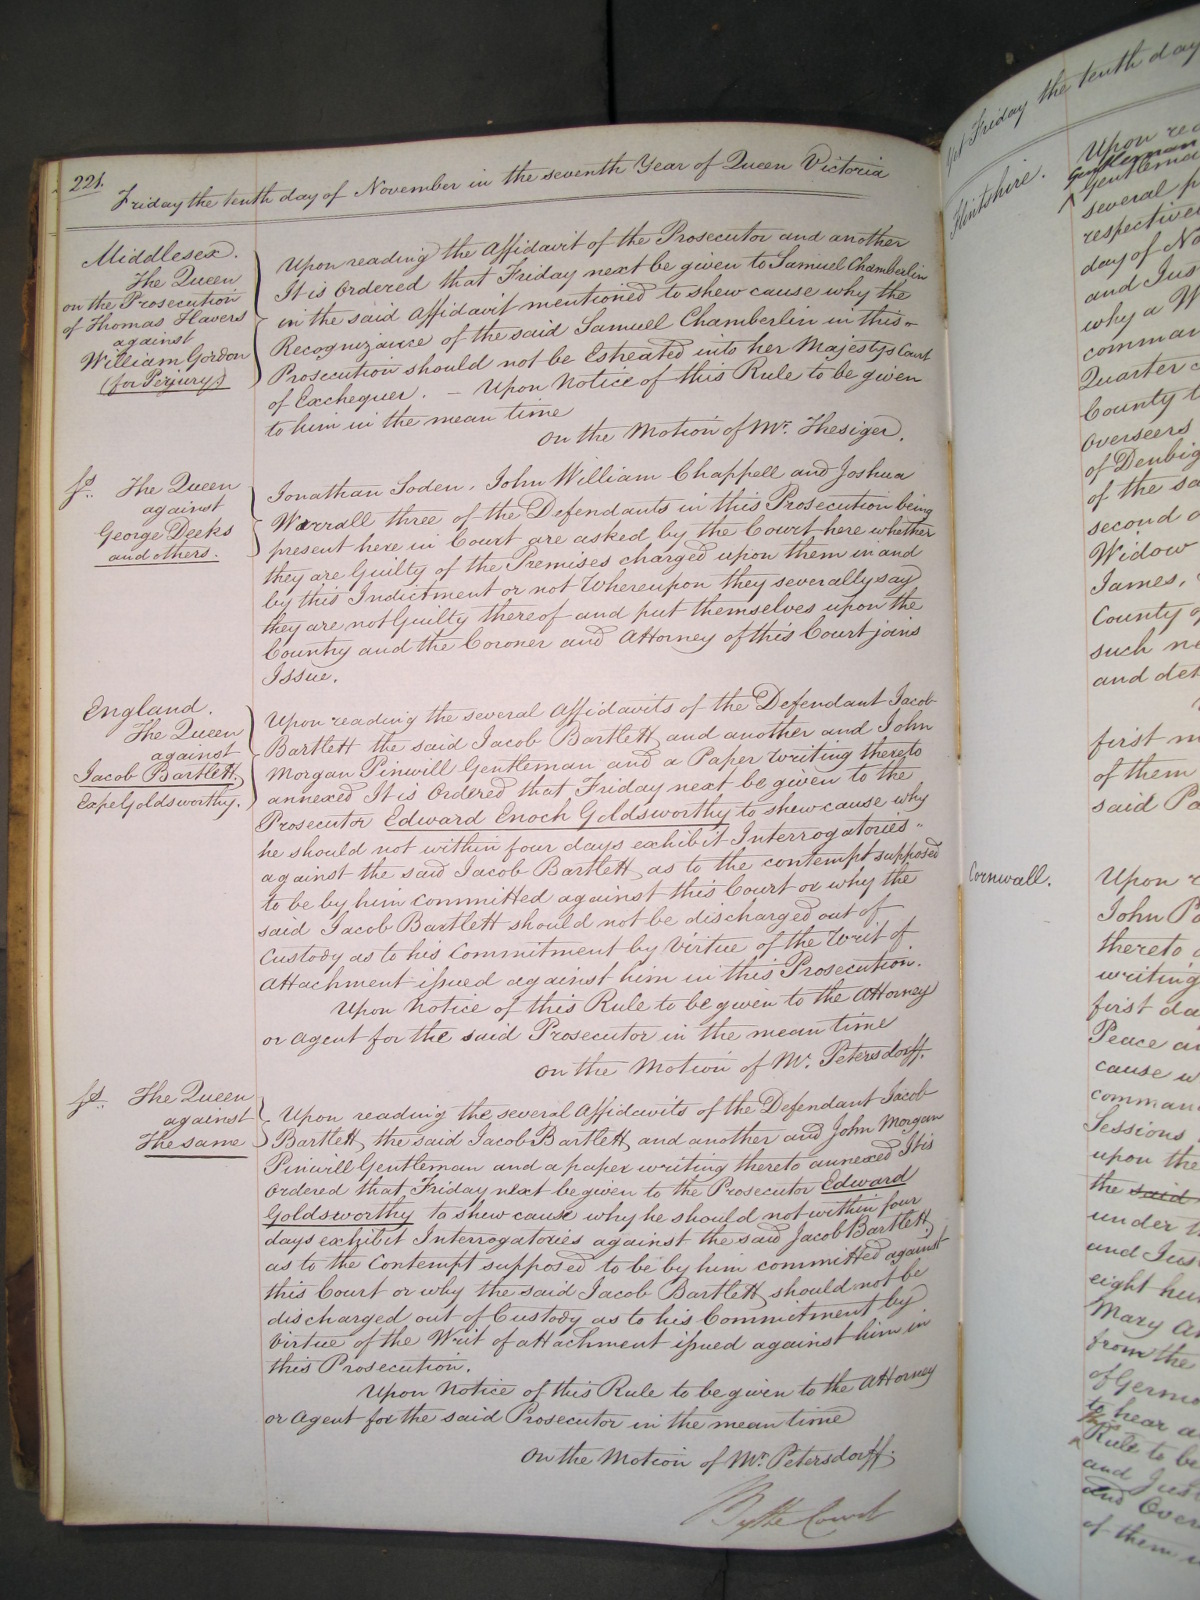 221.
Friday the tenth day of November in the seventh Year of Queen Victoria
Middlesex.
The Queen
on the Prosecution
of Thomas Havers
against
William Gordon
(for Perjury)
Upon reading the Affidavit of the Prosecutor and another
It is Ordered that Friday next be given to Samuel Chamberlin
in the said Affidavit mentioned to shew cause why the
Recognizance of the said Samuel Chamberlin in this
Prosecution should not be Estreated into her Majestys Court
of Exchequer. – Upon Notice of this Rule to be given
to him in the mean time
On the Motion of Mr. Thesiger.
The Queen
against
George Deeks
and others.
Jonathan Soden, John William Chappell and Joshua
Worrall three of the Defendants in this Prosecution being
present here in Court are asked by the Court here whether
they are Guilty of the Premises charged upon them in and
by this Indictment or not Whereupon they severally say
they are not Guilty thereof and put themselves upon the
Country and the Coroner and Attorney of this Court joins
Issue.
England.
The Queen
against
Jacob Bartlett.
Expe Goldsworthy.
Upon reading the several Affidavits of the Defendant Jacob
Bartlett the said Jacob Bartlett and another and John
Morgan Pinwill Gentleman and a Paper Writing thereto
annexed It is Ordered that Friday next be given to the
Prosecutor Edward Enoch Goldsworthy to shew cause why
he should not within four days exhibit Interrogatories
against the said Jacob Bartlett as to the contempt supposed
to be by him committed against this Court or why the
said Jacob Bartlett should not be discharged out of
Custody as to his Commitment by Virtue of the Writ of
Attachment issued against him in this Prosecution.
Upon Notice of this Rule to be given to the Attorney
or Agent for the said Prosecutor in the mean time
On the Motion of Mr. Petersdorff.
The Queen
against
The same
Upon reading the several Affidavits of the Defendant Jacob
Bartlett, the said Jacob Bartlett and another and John Morgan
Pinwill Gentleman and a paper writing thereto annexed It is
Ordered that Friday next be given to the Prosecutor Edward
Goldsworthy to shew cause why he should not within four
days exhibit Interrogatories against the said Jacob Bartlett
as to the Contempt supposed to be by him committed against
this Court or why the said Jacob Bartlett should not be
discharged out of Custody as to his Commitment by
Virtue of the Writ of attachment issued against him in
this Prosecution.
Upon Notice of this Rule to be given to the Attorney
or Agent for the said Prosecutor in the mean time
On the Motion of Mr. Petersdorff.
By the Court
Yet Friday the tenth day
Flintshire.
Upon
Gentleman
several
respective
day of
and
why a
Quarter
County
Overseers
of
of the
second
Widow
James,
County
such
and
first
of them
said
Cornwall.
Upon
John
thereto
writing
first
Peace
cause
Sessions
upon the
the said
under
and
eight
Mary
from the
of
to hear
Rule to be
and
and
of them